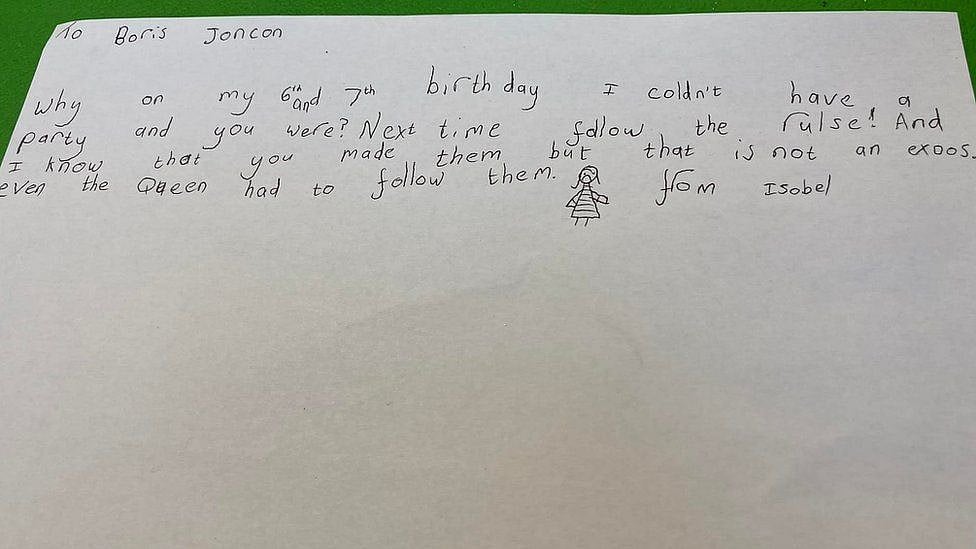 To Boris Joncon
Why on my 6th and 7th birthday I coldn't have a
party and you were? Next time follow the rulse! And
I know that you made them but that is not an exoos.
even the Queen had to follow them. from Isobel